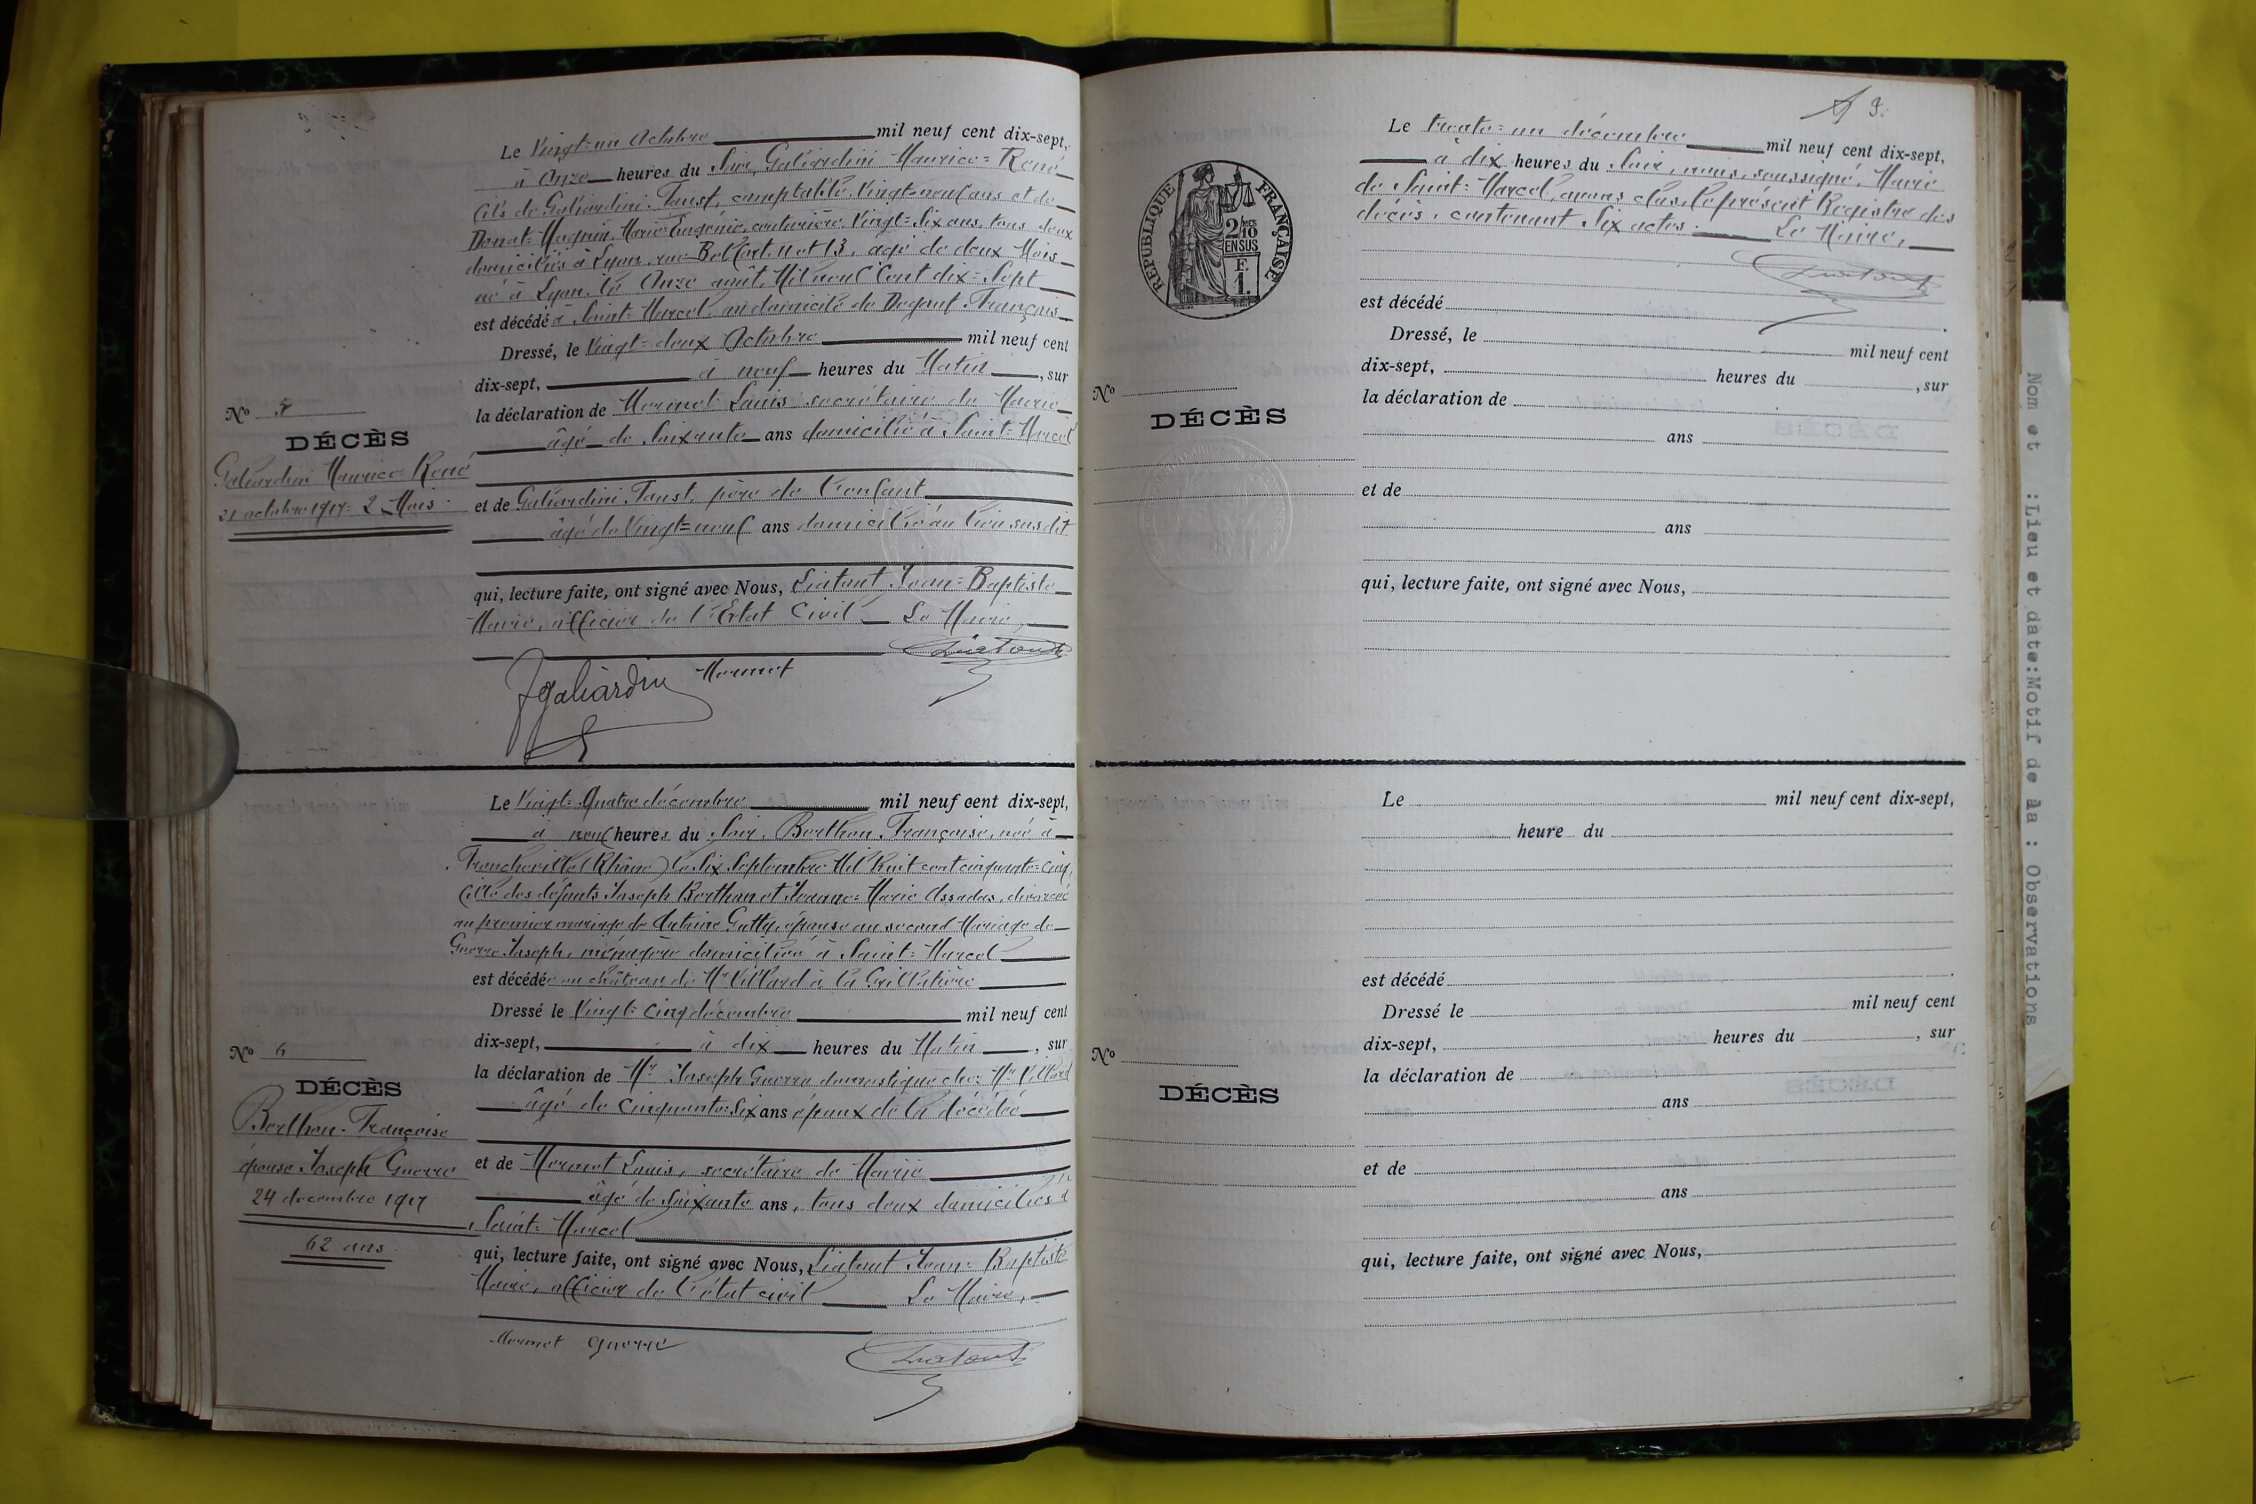 Le Vingt=un Octobre mil neuf cent dix-sept,
à Onze heures du Soir, Galiardini Maurice=René
fils de Galiardini Faust, comptable, Vingt=neuf ans et de
Donat=Magnin, Marie Eugénie, couturière, Vingt=Six ans, tous deux
domiciliés à Lyon, rue Belfort, n et 13, agé de deux Mois
né à Lyon, le Onze août, Mil neuf Cent dix=Sept
est décédé à Saint=Marcel, au domicile de François
Dressé, le Vingt=deux Octobre mil neuf cent
dix-sept, à neuf heures du Matin, sur
la déclaration de Mermet Louis secrétaire de Mairie
âgé de Soixante ans domicilié à Saint=Marcel
Nº 5
DÉCÈS
Galiardini Maurice=René
21 octobre 1917= 2 Mois
et de Galiardini Faust, père de l'enfant
âgé de Vingt=neuf ans domicilié au lieu susdit
qui, lecture faite, ont signé avec Nous, Liatout Jean=Baptiste
Maire, officier de l'Etat Civil Le Maire,
Liatout
Mermet
F Galiardini
Le Vingt=Quatre décembre mil neuf cent dix-sept,
à neuf heures du Soir, Berthon Françoise, née à
Francheville (Rhône) le Six Septembre Mil huit cent cinquante=cinq,
fille des défunts Joseph Berthon et Jeanne=Marie Assadas, divorcée
au premier mariage de Antoine Gutty, épouse au second Mariage de
Guerre Joseph, ménagère domiciliée à Saint=Marcel
est décédée au château de Mr Villard à la
Dressé le Vingt=Cinq décembre mil neuf cent
dix-sept, à dix heures du Matin, sur
la déclaration de Mr Joseph Guerre domestique chez Mr Villard
âgé de Cinquante=Six ans époux de la décédée
Nº 6
DÉCÈS
Berthon=Françoise
épouse Joseph Guerre
24 décembre 1917
62 ans
et de Mermet Louis, secrétaire de Mairie
âgé de Soixante ans, tous deux domiciliés à
Saint=Marcel
qui, lecture faite, ont signé avec Nous, Liatout Jean=Baptiste
Maire, officier de l'état civil Le Maire,
Mermet Guerre
Liatout
9.
Le trente=un décembre mil neuf cent dix-sept,
à dix heures du Soir, nous, soussigné, Maire
de Saint=Marcel, avons clos le présent Registre des
décès, contenant Six actes. Le Maire,
Liatout
RÉPUBLIQUE FRANÇAISE
2/10
EN SUS
F.
1.
est décédé
Dressé, le mil neuf cent
dix-sept, heures du , sur
la déclaration de
ans
Nº
DÉCÈS
et de
ans
qui, lecture faite, ont signé avec Nous,
Le mil neuf cent dix-sept,
heure du
est décédé
Dressé le mil neuf cent
dix-sept, heures du , sur
la déclaration de
ans
Nº
DÉCÈS
et de
ans
qui, lecture faite, ont signé avec Nous,
Nom et :Lieu et date:Motif de la : Observations